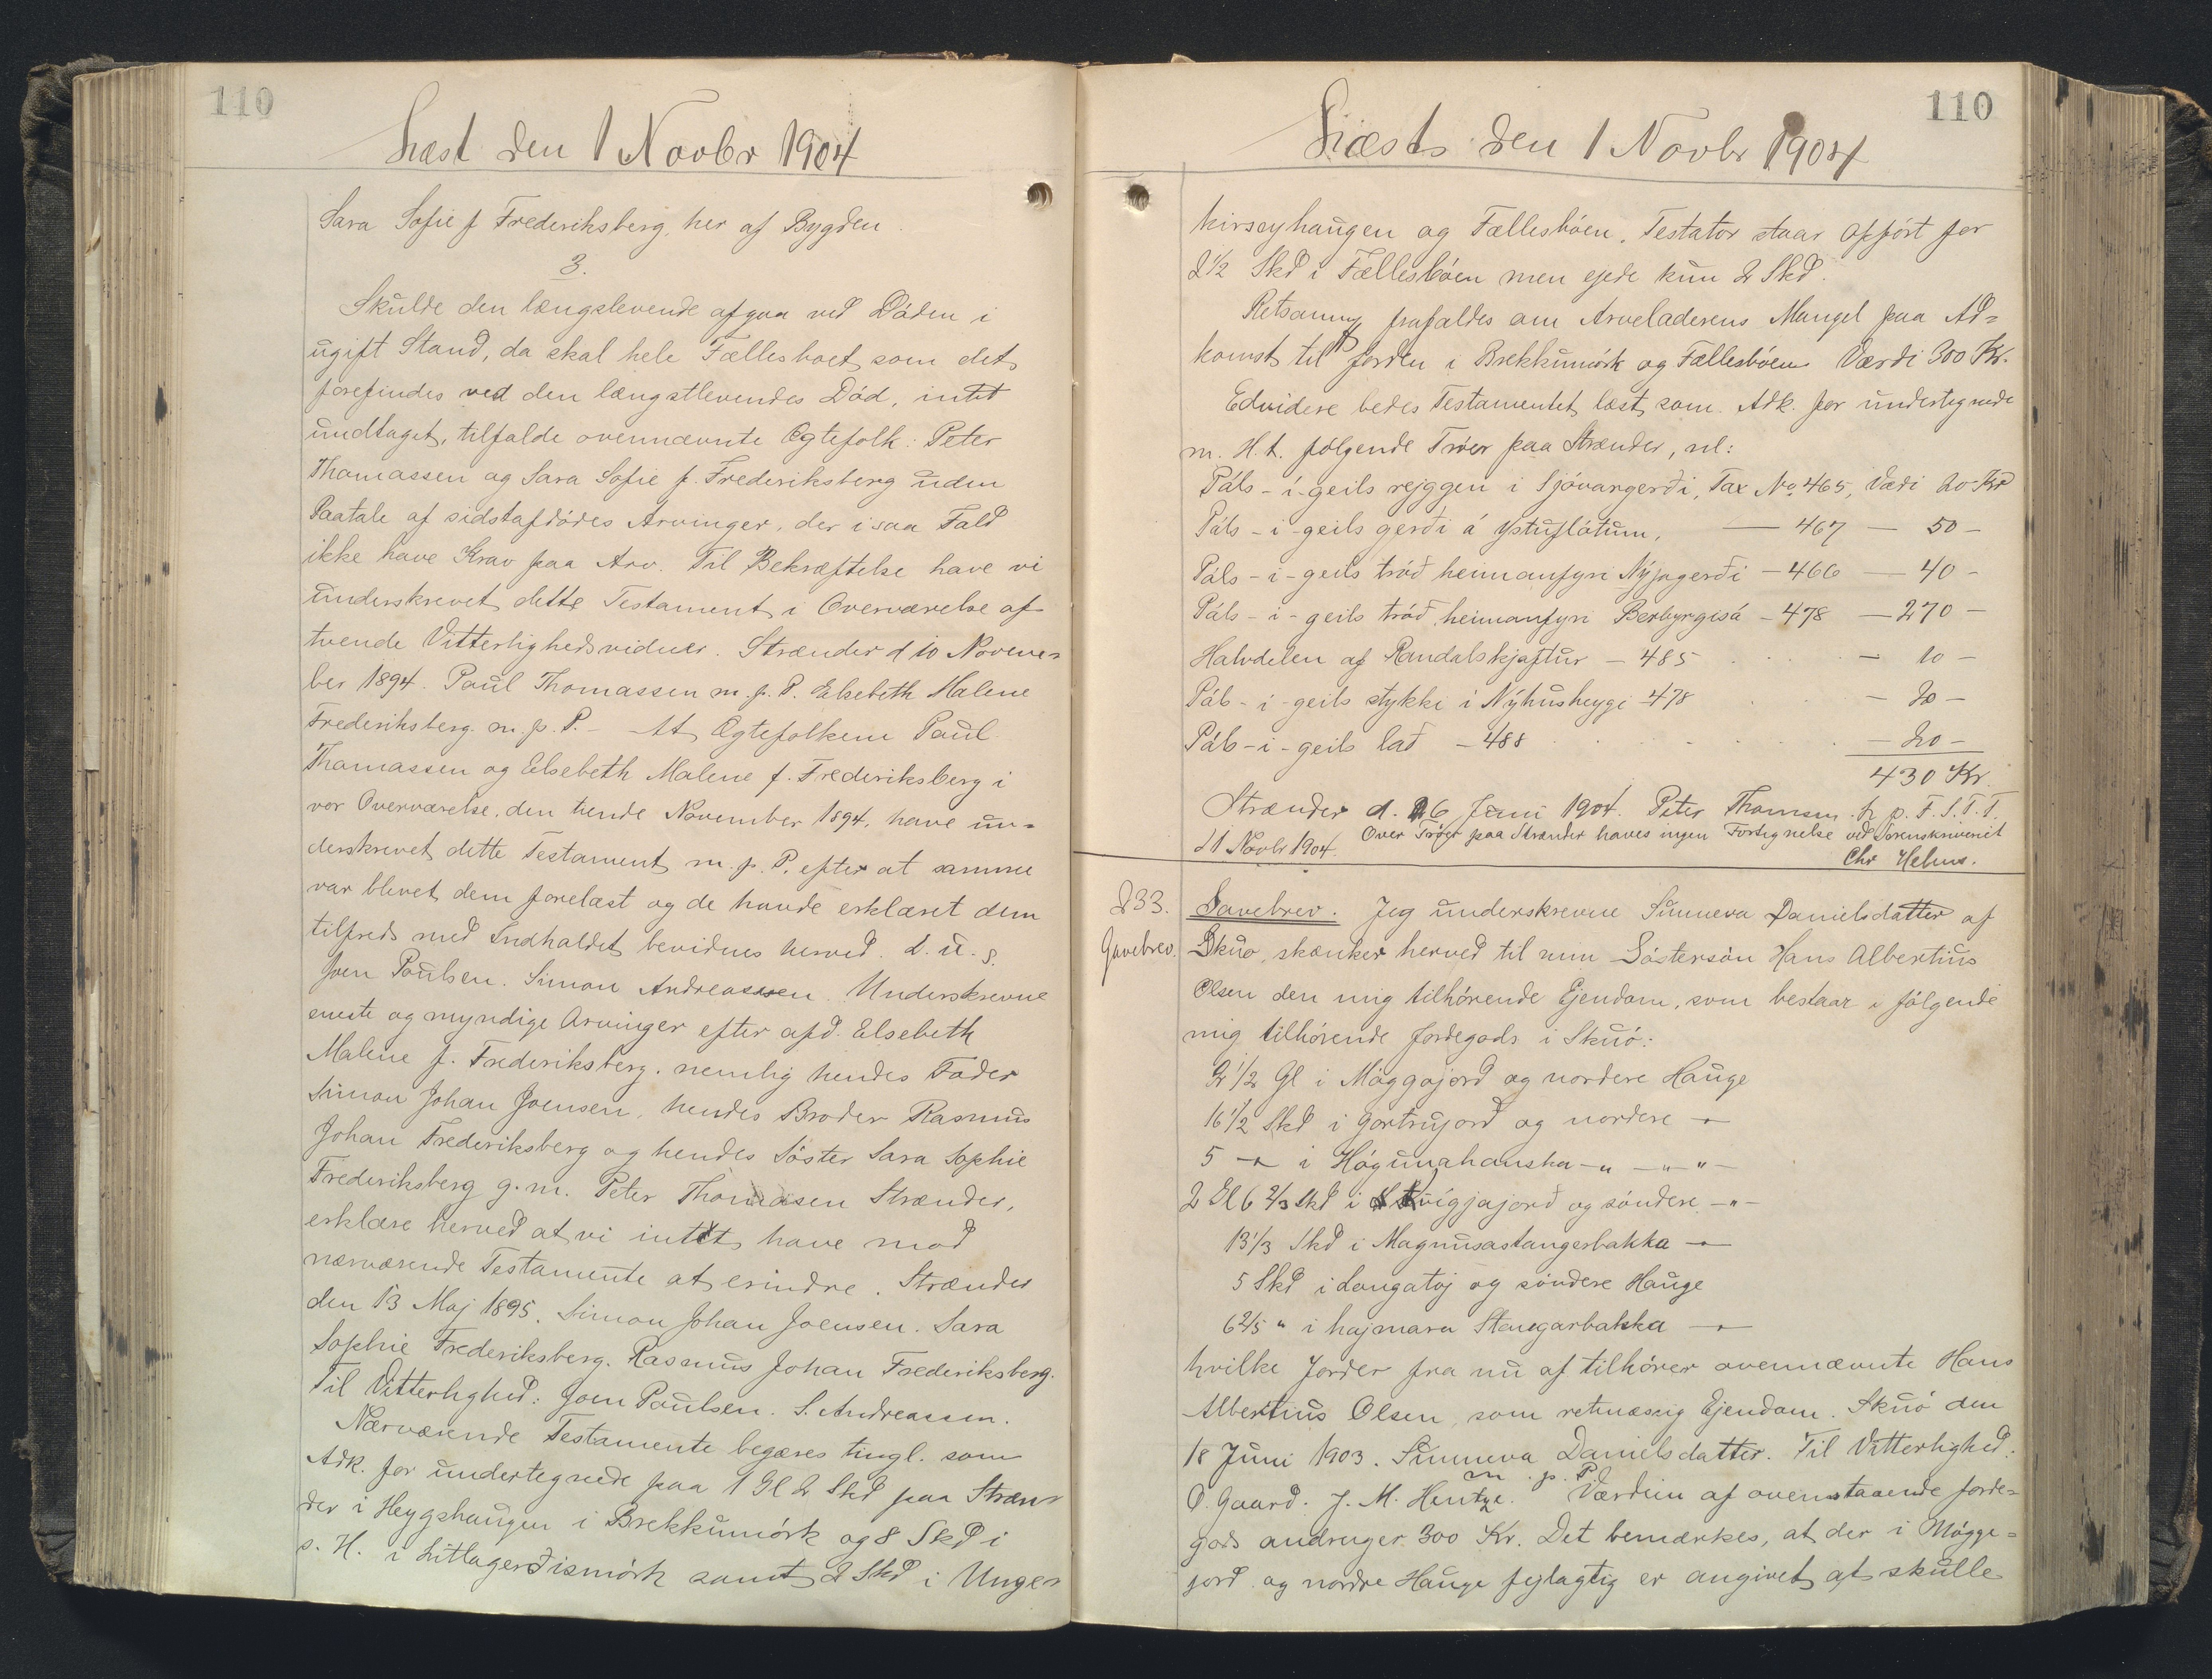 110
Læst den 1 Novbr 1904
Sara Sofie f Frederiksberg, her af Bygden
3.
Skulde den længslevende afgaa ved Döden i
ugift Stand, da skal hele Fællesboet som det
forefindes ved den længstlevendes Död, intet
undtaget, tilfalde ovennævnte Egtefolk: Peter
Thomassen og Sara Sofie f. Frederiksberg uden
Paatale af sidstafdödes Arvinger, der i saa Fald
ikke have Krav paa Arv. Til Bekræftelse have vi
underskrevet dette Testament i Overværelse af
tvende Vitterlighedsvidner. Strænder d 10 Novem=
ber 1894. Paul Thomassen m. p. P. Elsebeth Malene
Frederiksberg. m. p. P. – At Egtefolkene Paul
Thomassen og Elsebeth Malene f. Frederiksberg i
vor Overværelse, den tiende November 1894, have un=
derskrevet dette Testament m. p. P. efter at samme
var blevet dem forelæst og de havde erklæret dem
tilfreds med Indholdet bevidnes herved. D. u. s.
Joen Poulsen. Simon Andreassen. Underskrevne
eneste og myndige Arvinger efter afd. Elsebeth
Malene f. Frederiksberg. nemlig hendes Fader
Simon Johan Joensen, hendes Broder Rasmus
Johan Frederiksberg og hendes Söster Sara Sophie
Frederiksberg g. m. Peter Thomasen Strænder,
erklære herved at vi intet have mod
nærværende Testamente at erindre. Strænder
den 13 Maj 1895. Simon Johan Joensen. Sara
Sophie Frederiksberg. Rasmus Johan Frederiksberg.
Til Vitterlighed: Joen Poulsen. S. Andreassen.
Nærværende Testamente begæres tingl. som
Adk. for undertegnede paa 1 Gl 2 Skd paa Stræn=
der i Heygshaugen i Brekkumörk og 8 Skd i
s. H. i Litlagerdismörk samt 2 Skd i Unge=
110
Læst den 1 Novbr 1904
kirseyhaugen og Fællesböen. Testator staar opfört for
2 1/2 Skd i Fællesböen men ejede kun 2 Skd.
Retsanm frafaldes om Arveladerens Mangel paa Ad=
komst til Jorden i Brekkumörk og Fællesböen Værdi 300 Kr.
Edvidere bedes Testamentet læst som Adk. for undertegnede
m. H. t. fölgende Tröer paa Strænder, nl:
Páls - í - geils rejggen i Sjóvargerdi, Tax No 465, Værdi 20 Kr
Páls - i - geils gerdi á ystuflötum, — 467 — 50 –
Páls - i - geils tröd heimanfyri Nýjagerdi – 466 — 40 –
Páls - i - geils tröd heimanfyri Berbyrgisá – 478 — 270 –
Halvdelen af Randalskjaftur – 485 — 10 –
Páls - i - geils stykki i Nýhusheygi 478 – 20 –
Páls - i - geils lad – 488 – 20 –
430 Kr.
Strænder d. 26 Juni 1904. Peter Thomsen. h p. F. S. T. T.
d 1 Novbr 1904. Over Tröer paa Strænder haves ingen Fortegnelse ved Sorenskriveriet
Chr Helms.
233. Gavebrev. Jeg underskrevne Sunneva Danielsdatter af
Gavebrev. Skuö, skænker herved til min Söstersön Hans Albertius
Olsen den mig tilhörende Ejendom, som bestaar i fölgende
mig tilhörende Jordegods i Skuö:
2 1/2 Gl i Möggajord og nordere Hauge
16 1/2 Skd i Gortrujord og nordere –"–
5 –"– i Högunahanska –"– –"–"–
2 Gl 6 2/3 Skd i Stuígjajord og söndere –"–
13 1/3 Skd i Magnusastangerbakka –"–
5 Skd i Langatoj og söndere Hauge
6 2/5 " i hajmara Stangarbakka –"–
hvilke Jorder fra nu af tilhörer ovennævnte Hans
Albertius Olsen, som retmæssig Ejendom. Skuö den
18 Juni 1903. Sunneva Danielsdatter. Til Vitterlighed:
m. p. P.
O. Gaard. J. M. Hentze. Værdien af ovenstaaende Jorde=
gods andrager 300 Kr. Det bemærkes, at der i Mögge=
jord og nordre Hauge fejlagtig er angivet at skulle